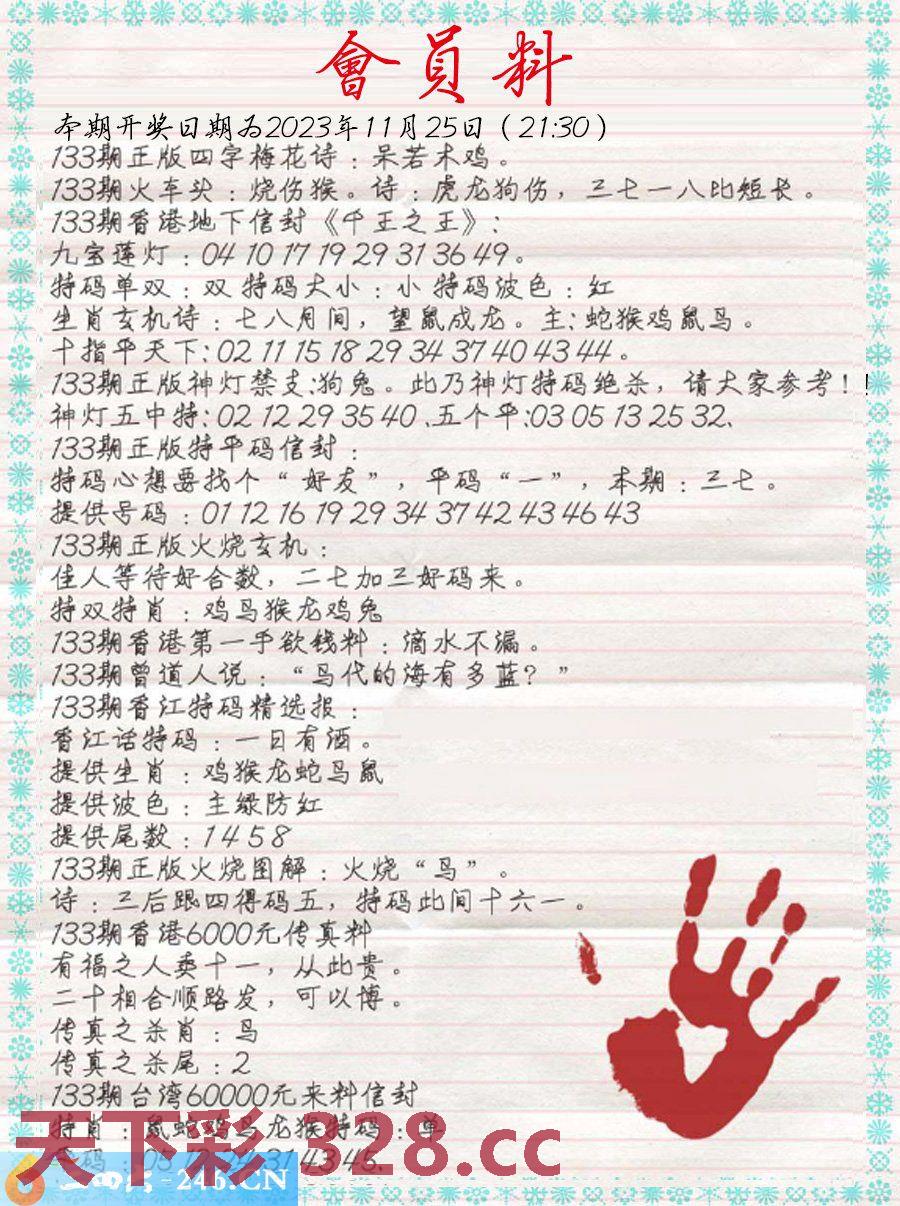 會員料
本期开奖日期为2023年11月25日（21:30）
133期正版四字梅花诗：呆若木鸡。
133期火车头：烧伤猴。诗：虎龙狗伤，三七一八比短长。
133期香港地下信封《千王之王》:
九宝莲灯：04 10 17 19 29 31 36 49。
特码单双：双 特码大小：小 特码波色：红
生肖玄机诗：七八月间，望鼠成龙。主:蛇猴鸡鼠马。
十指平天下:02 11 15 18 29 34 37 40 43 44。
133期正版神灯禁支:狗兔。此乃神灯特码绝杀，请大家参考！!
神灯五中特:02 12 29 35 40 .五个平:03 05 13 25 32.
133期正版特平码信封：
特码心想要找个“好友”，平码“一”，本期：三七。
提供号码：01 12 16 19 29 34 37 42 43 46 43
133期正版火烧玄机：
佳人等待好合数，二七加三好码来。
特双特肖：鸡马猴龙鸡兔
133期香港第一手欲钱料：滴水不漏。
133期曾道人说：“马代的海有多蓝？”
133期香江特码精选报：
香江话特码：一日有酒。
提供生肖：鸡猴龙蛇马鼠
提供波色：主绿防红
提供尾数：1 4 5 8
133期正版火烧图解：火烧“马”。
诗：三后跟四得码五，特码此间十六一。
133期香港6000元传真料
有福之人卖十一，从此贵。
二十相合顺路发，可以博。
传真之杀肖：马
传真之杀尾：2
133期台湾60000元来料信封
特肖：鼠蛇鸡马龙猴特码：单
天下彩-328.cc
-246.CN